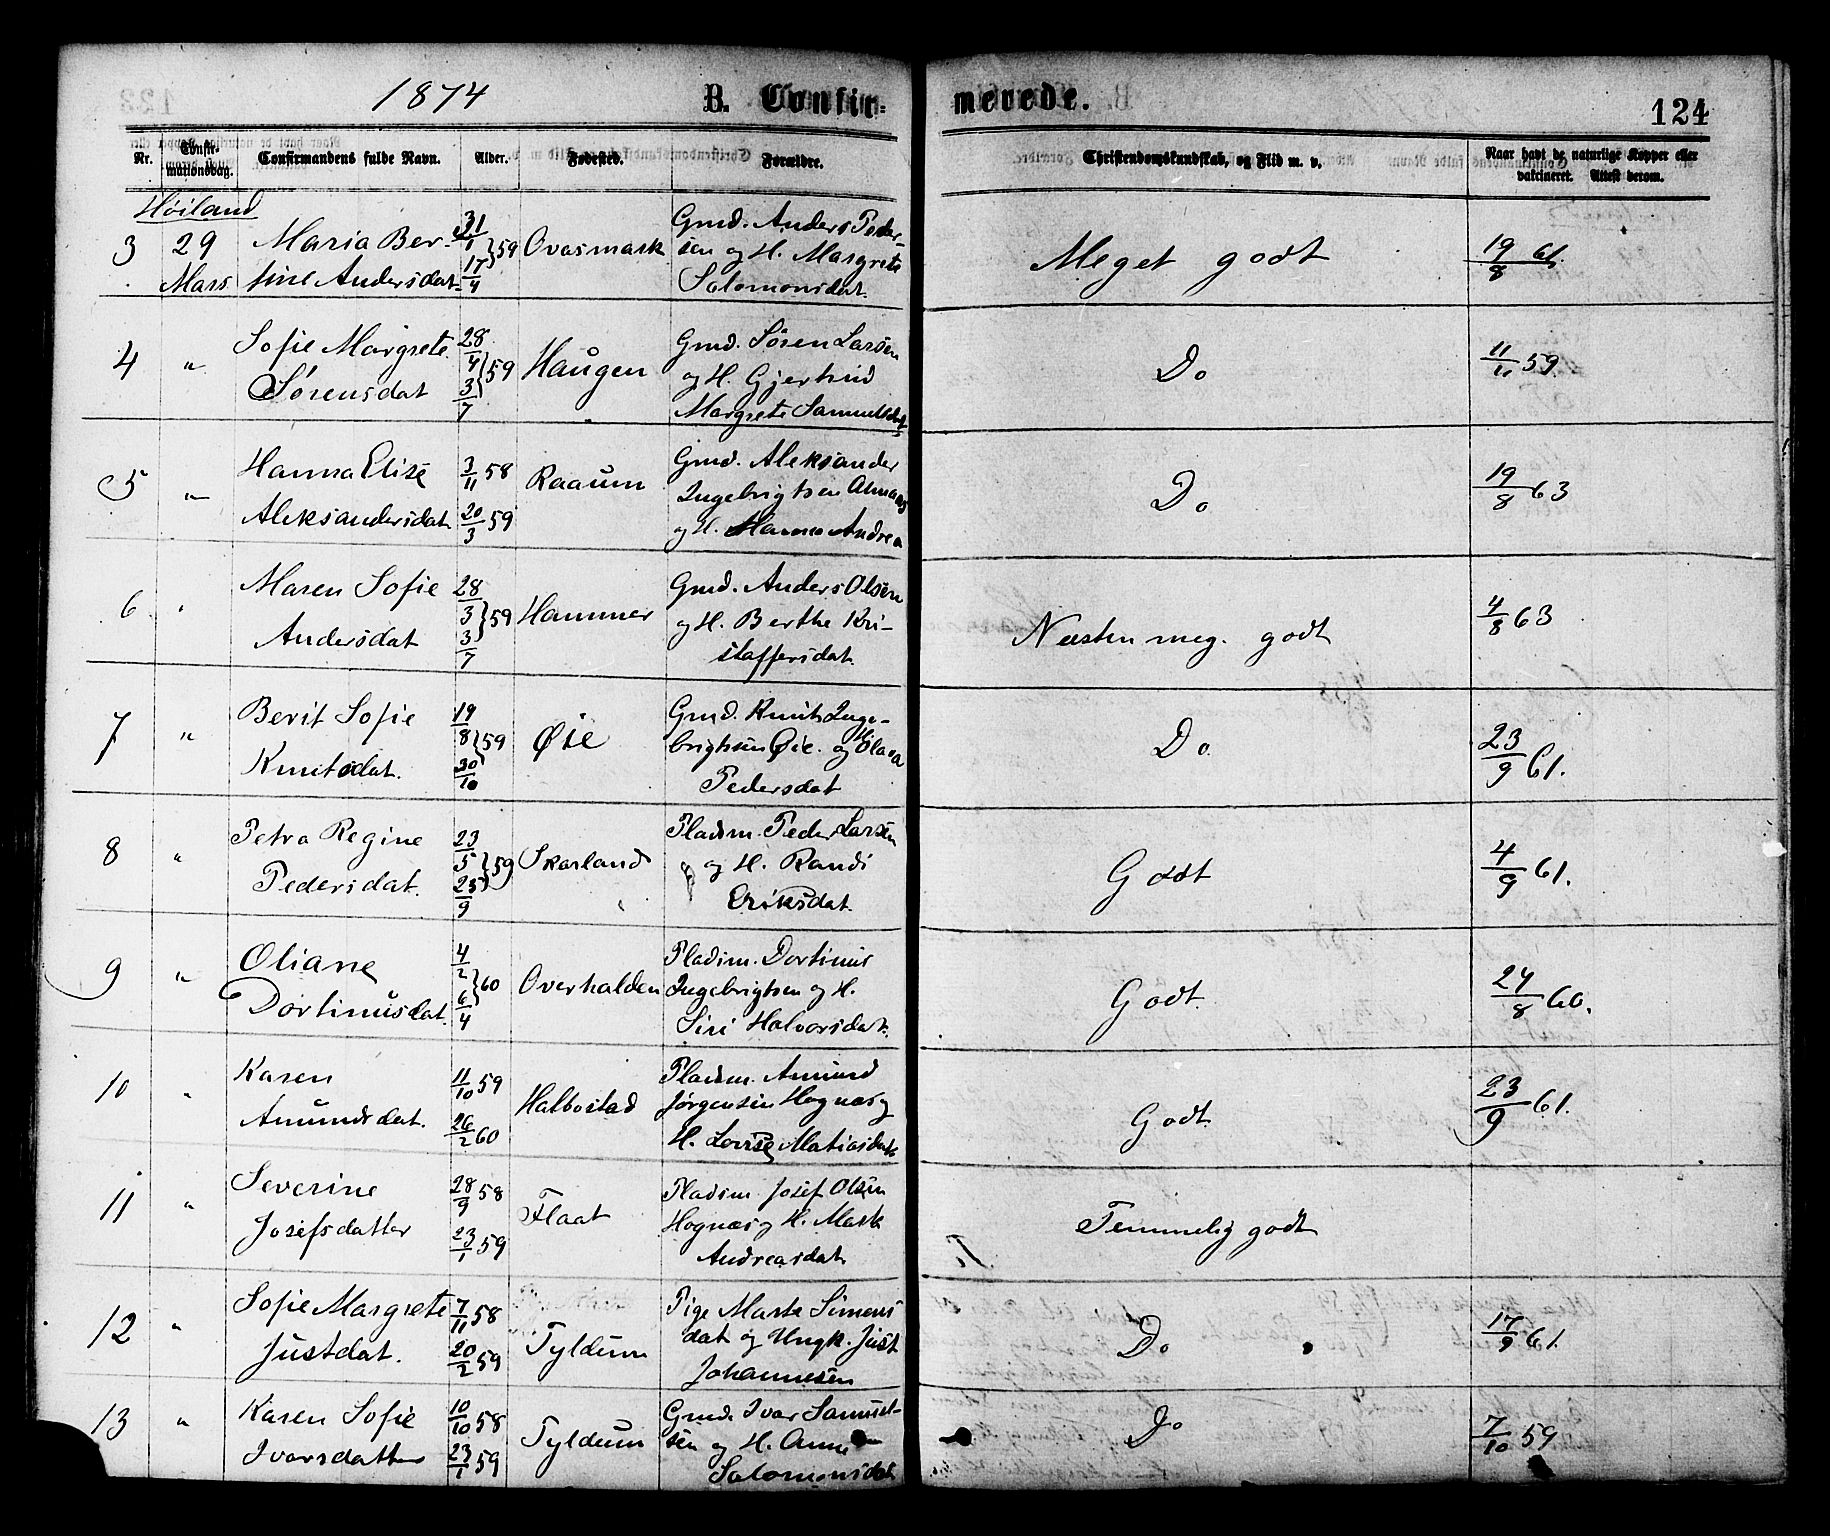 1874 B. Confirmerede. 124
Nr. Confirmationsdag. Confirmandens fulde Navn. Alder. Fødested. Forældre. Christendomskundskab, og Flid m. v. Naar havt de naturlige Kopper eller vakcineret. Attest derom.
Høiland
3 29 Mars Maria Bertine Andersdat. 31/1 17/4 } 59 Ovasmark Gmd. Anders Pedersen og H. Margrete Salomonsdat. Meget godt 19/8 61.
4 " Sofie Margrete Sørensdat 28/4 3/7 } 59 Haugen Gmd. Søren Larsen og H. Gjertrud Margrete Samuelsdat Do 59.
5 " Hanna Elise Aleksandersdat 3/11 58 20/3 59 Raaum Gmd. Aleksander Ingebrigtsen og H. Andrea Do 19/8 63
6 " Maren Sofie Andersdat 28/3 3/7 } 59 Hammer Gmd. Anders Olsen og H. Berthe Kristaffersdat. Næsten meg. godt 4/8 63
7 " Berit Sofie Knutsdat. 19/8 30/10 } 59 Øie Gmd. Knut Ingebrigtsen Øie. og H Olava Pedersdat Do. 23/9 61.
8 " Petra Regine Pedersdat. 23/5 25/9 } 59 Skarland Pladsm. Peder Larsen og H. Randi Eriksdat. Godt 4/9 61.
9 " Oliane Dortinusdat. 4/2 6/4 } 60 Overhalden Pladsm. Dortinus Ingebrigtsen og H. Siri Halvorsdat. Godt. 24/8 60.
10 " Karen Amundsdat. 11/10 59 26/2 60 Halbostad Pladsm. Amund Jørgensen Hognæs og H. Lovise Matiasdat Godt. 23/9 61.
11 " Severine Josefsdatter 28/9 58 23/1 59 Flaat Pladsm. Josef Olsen Hognæs og H. Marta Andreasdat. Temmelig godt
12 " Sofie Margrete Justdat. 7/11 58 20/2 59 Tyldum Pige Marta Simensdat og Ungk. Just Johannesen Do 17/9 61.
13 " Karen Sofie Ivarsdatter 10/10 58 23/1 59 Tyldum Gmd. Ivar Samuelsen og H. Anne Salomonsdat Do 7/10 59